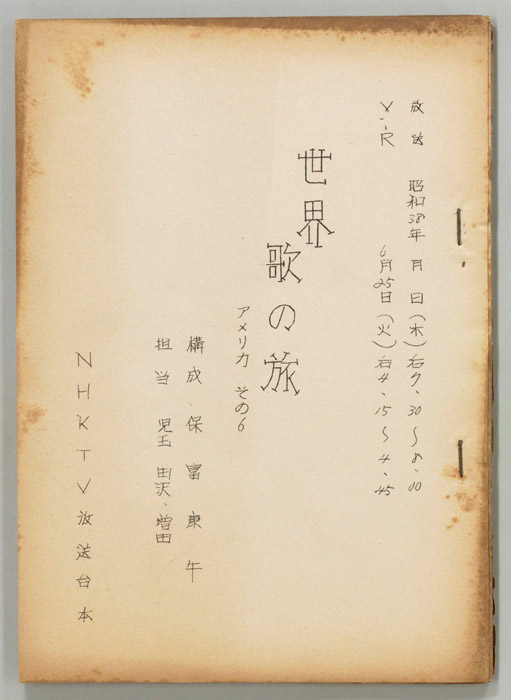 放送 昭和38年 月 日(木)后7.30〜8.00
V.R 6月25日(火)后4.15〜4.45
世界
歌の旅
アメリカ その6
構成 保富康午
担当 児玉 田沢、増田
NHKTV放送台本